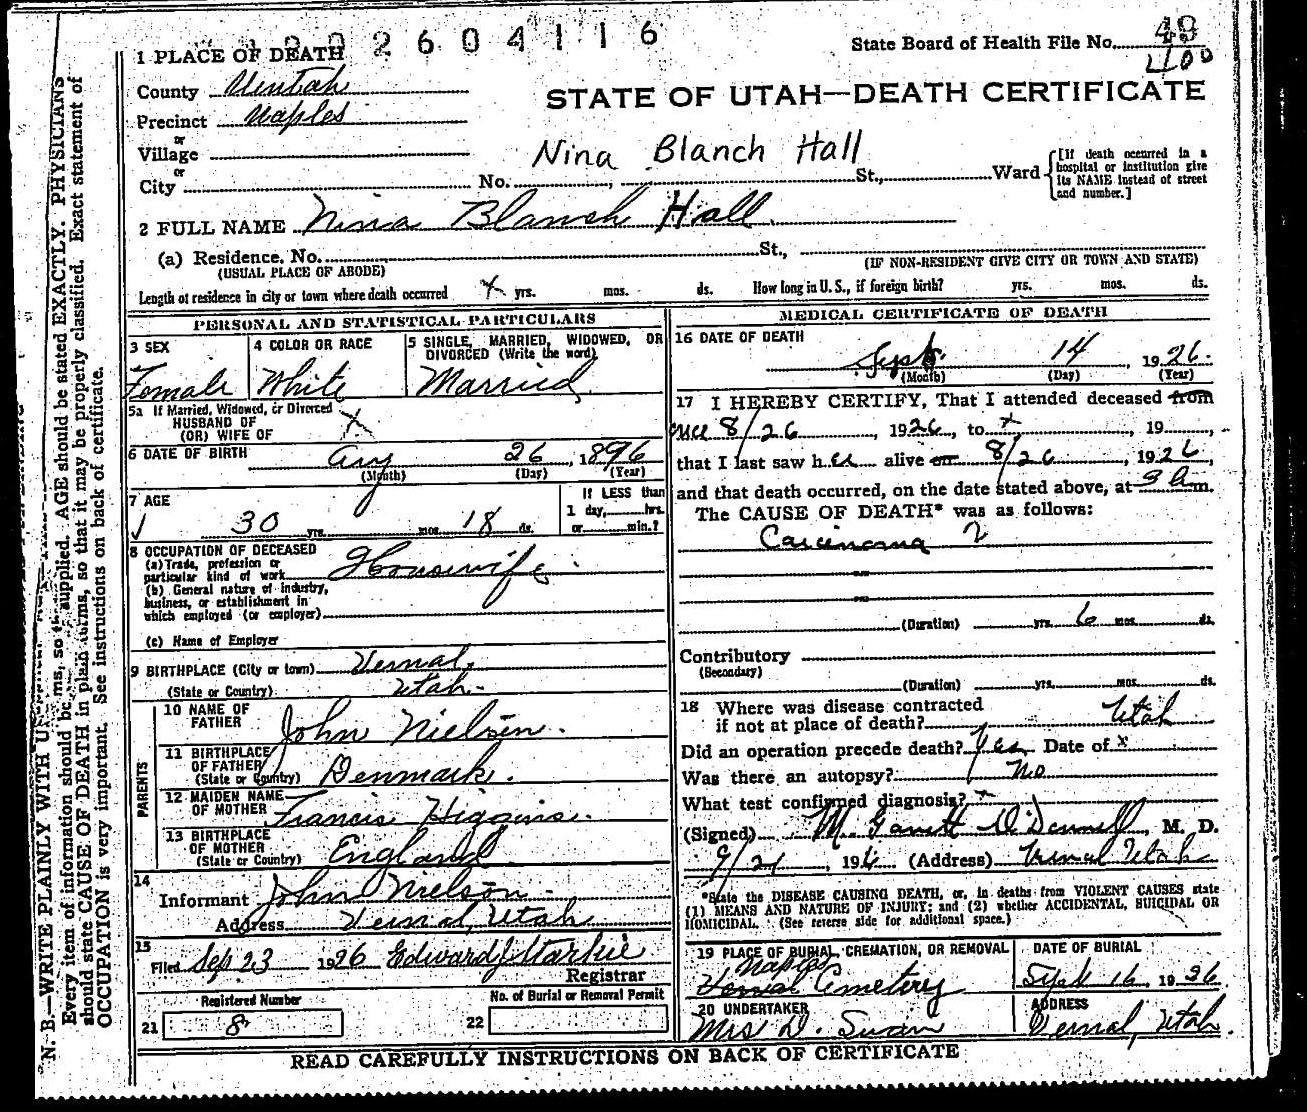 2 6 0 4 1 1 6
State Board of Health File No. 49
400
1 PLACE OF DEATH
County Uintah
STATE OF UTAH—DEATH CERTIFICATE
Precinct Naples
or
Village
Nina Blanch Hall
or
City No. , St., Ward
[If death occurred in a
hospital or institution give
its NAME instead of street
and number.]
2 FULL NAME Nina Blanch Hall
(a) Residence. No. St.,
(USUAL PLACE OF ABODE) (IF NON-RESIDENT GIVE CITY OR TOWN AND STATE)
Length of residence in city or town where death occurred x yrs. mos. ds. How long in U. S., if foreign birth? yrs. mos. ds.
PERSONAL AND STATISTICAL PARTICULARS
3 SEX
Female
4 COLOR OR RACE
White
5 SINGLE, MARRIED, WIDOWED, OR
DIVORCED (Write the word)
Married
5a If Married, Widowed, or Divorced
HUSBAND OF
(OR) WIFE OF x
6 DATE OF BIRTH
Aug 26, 1896
(Month) (Day) (Year)
7 AGE
30 yrs. mos. 18 ds.
If LESS than
1 day, hrs.
or min.?
8 OCCUPATION OF DECEASED
(a) Trade, profession or
particular kind of work Housewife
(b) General nature of industry,
business, or establishment in
which employed (or employer)
(c) Name of Employer
9 BIRTHPLACE (City or town) Vernal,
(State or Country) Utah
PARENTS
10 NAME OF
FATHER John Nielson
11 BIRTHPLACE
OF FATHER
(State or Country) Denmark
12 MAIDEN NAME
OF MOTHER Francis Higgins
13 BIRTHPLACE
OF MOTHER
(State or Country) England
14
Informant John Nielson
Address Vernal, Utah
15
Filed Sep 23 1926 Edward J Starkie
Registrar
Registered Number
21 8
No. of Burial or Removal Permit
22
MEDICAL CERTIFICATE OF DEATH
16 DATE OF DEATH
Sept 14, 1926
(Month) (Day) (Year)
17 I HEREBY CERTIFY, That I attended deceased from
since 8/26, 1926, to x, 19 ,
that I last saw her alive on 8/26, 1926,
and that death occurred, on the date stated above, at 3 a.m.
The CAUSE OF DEATH* was as follows:
Carcinoma ?
(Duration) yrs. 6 mos. ds.
Contributory
(Secondary)
(Duration) yrs. mos. ds.
18 Where was disease contracted
if not at place of death? Utah
Did an operation precede death? Yes Date of x
Was there an autopsy? No
What test confirmed diagnosis? x
(Signed) M. Garrett O'Donnell, M. D.
9/21, 1926 (Address) Vernal Utah
*State the DISEASE CAUSING DEATH, or, in deaths from VIOLENT CAUSES state
(1) MEANS AND NATURE OF INJURY; and (2) whether ACCIDENTAL, SUICIDAL OR
HOMICIDAL. (See reverse side for additional space.)
19 PLACE OF BURIAL, CREMATION, OR REMOVAL
Naples
Vernal Cemetery
DATE OF BURIAL
Sept 16, 1926
20 UNDERTAKER
Mrs D. Swain
ADDRESS
Vernal, Utah.
READ CAREFULLY INSTRUCTIONS ON BACK OF CERTIFICATE
N. B.—WRITE PLAINLY WITH
Every item of information should be supplied. AGE should be stated EXACTLY. PHYSICIANS
should state CAUSE OF DEATH in plain terms, so that it may be properly classified. Exact statement of
OCCUPATION is very important. See instructions on back of certificate.